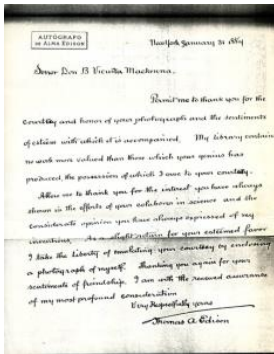 AUTÓGRAFO
DE ALVA EDISON
New York January 31 1889
Senor Don B Vicuña Mackenna.
Permit me to thank you for the
courtesy and honor of your photograph and the sentiments
of esteem with which it is accompanied. My library contains
no work more valued than those which your genius has
produced, the possession of which I owe to your courtesy.
Allow me to thank you for the interest you have always
shown in the efforts of your colaborers in science and the
considerate opinion you have always expressed of my
inventions. As a slight return for your esteemed favor
I take the liberty of emulating your courtesy by enclosing
a photograph of myself. Thanking you again for your
sentiments of friendship. I am with the renewed assurance
of my most profound consideration
Very Respectfully yours
Thomas A Edison